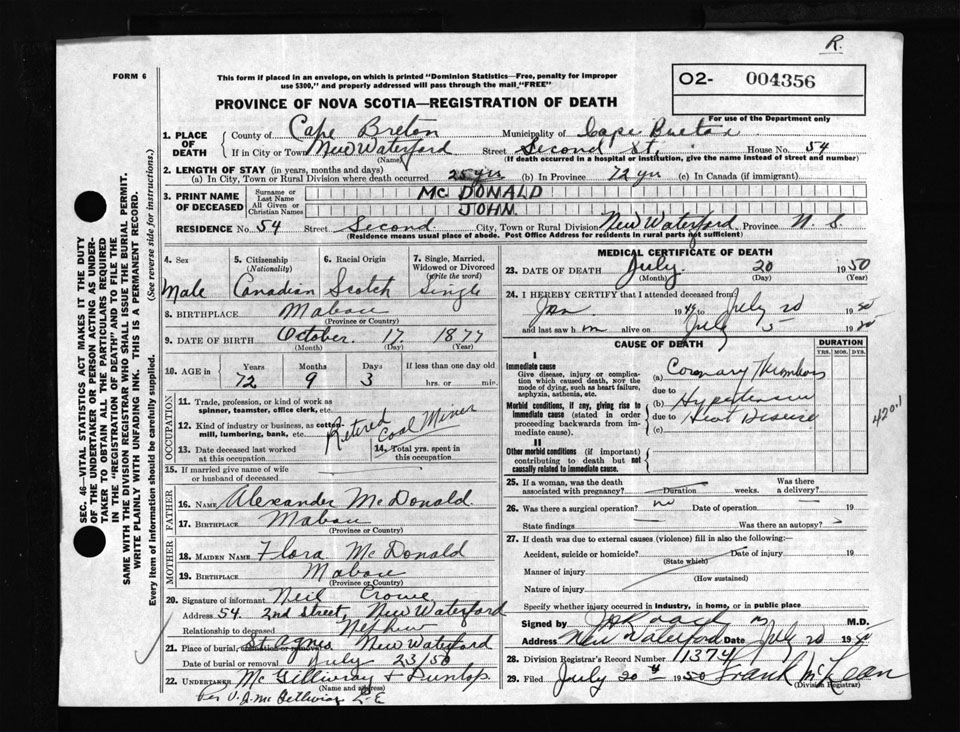 R.
FORM 6
This form if placed in an envelope, on which is printed "Dominion Statistics—Free, penalty for improper
use $300," and properly addressed will pass through the mail, "FREE"
O2- 004356
For use of the Department only
PROVINCE OF NOVA SCOTIA—REGISTRATION OF DEATH
1. PLACE OF DEATH { County of Cape Breton Municipality of Cape Breton
If in City or Town New Waterford Street Second St. House No. 54
(Name) (If death occurred in a hospital or institution, give the name instead of street and number)
2. LENGTH OF STAY (in years, months and days)
(a) In City, Town or Rural Division where death occurred 25 yrs (b) In Province 72 yrs (c) In Canada (if immigrant)
3. PRINT NAME OF DECEASED { Surname or Last Name McDONALD
All Given or Christian Names JOHN
RESIDENCE No. 54 Street Second City, Town or Rural Division New Waterford Province N. S.
(Residence means usual place of abode. Post Office Address for residents in rural parts not sufficient)
4. Sex Male
5. Citizenship (Nationality) Canadian
6. Racial Origin Scotch
7. Single, Married, Widowed or Divorced (write the word) Single
8. BIRTHPLACE Mabou
(Province or Country)
9. DATE OF BIRTH October 17 1877
(Month) (Day) (Year)
10. AGE in { Years 72 Months 9 Days 3 If less than one day old hrs. or min.
OCCUPATION
11. Trade, profession, or kind of work as spinner, teamster, office clerk, etc.
12. Kind of industry or business, as cotton-mill, lumbering, bank, etc. Retired Coal Miner
13. Date deceased last worked at this occupation
14. Total yrs. spent in this occupation
15. If married give name of wife or husband of deceased
FATHER
16. NAME Alexander McDonald
17. BIRTHPLACE Mabou
(Province or Country)
MOTHER
18. MAIDEN NAME Flora McDonald
19. BIRTHPLACE Mabou
(Province or Country)
20. Signature of informant Neil Crowe
Address 54 2nd Street, New Waterford
Relationship to deceased Nephew
21. Place of burial, St Agnes New Waterford
Date of burial or removal July 23/50
22. UNDERTAKER McGillivray & Dunlop
(Name and address)
MEDICAL CERTIFICATE OF DEATH
23. DATE OF DEATH July 20 1950
(Month) (Day) (Year)
24. I HEREBY CERTIFY that I attended deceased from
Jan 19 to July 20 19
and last saw h m alive on July 5 19
CAUSE OF DEATH
DURATION
YRS. MOS. DYS.
I
Immediate cause
Give disease, injury or complication which caused death, NOT the mode of dying, such as heart failure, asphyxia, asthenia, etc.
(a) Coronary Thrombosis
due to
Morbid conditions, if any, giving rise to immediate cause (stated in order proceeding backwards from immediate cause).
(b) Hypertensive
due to Heart Disease
(c)
420.1
II
Other morbid conditions (if important) contributing to death but not causally related to immediate cause.
25. If a woman, was the death associated with pregnancy? Duration weeks. Was there a delivery?
26. Was there a surgical operation? no Date of operation 19
State findings Was there an autopsy?
27. If death was due to external causes (violence) fill in also the following:
Accident, suicide or homicide? Date of injury 19
(State which)
Manner of injury
(How sustained)
Nature of injury
Specify whether injury occurred in industry, in home, or in public place
Signed by M.D.
Address New Waterford Date July 20 19
28. Division Registrar's Record Number 11374
29. Filed July 20th 1950 Frank McLean
(Division Registrar)
SEC. 46—VITAL STATISTICS ACT MAKES IT THE DUTY
OF THE UNDERTAKER OR PERSON ACTING AS UNDER-
TAKER TO OBTAIN ALL THE PARTICULARS REQUIRED
IN THE "REGISTRATION OF DEATH" AND TO FILE THE
SAME WITH THE DIVISION REGISTRAR WHO SHALL ISSUE THE BURIAL PERMIT.
WRITE PLAINLY WITH UNFADING INK. THIS IS A PERMANENT RECORD.
Every item of information should be carefully supplied. (See reverse side for instructions.)